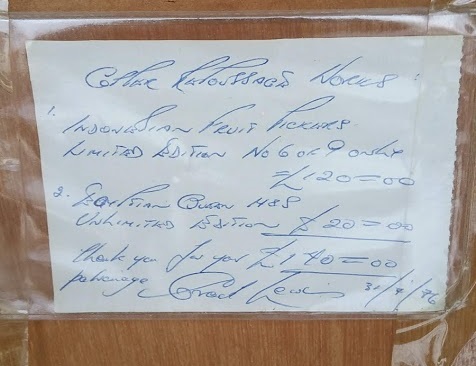 COPPER REPOUSSAGE WORKS
1.
INDONESIAN FRUIT PICKERS
LIMITED EDITION No 6 OF 9 ONLY
=£120=00
2. EGYPTIAN QUEEN
UNLIMITED EDITION £20=00
Thank you for your £140=00
patronage